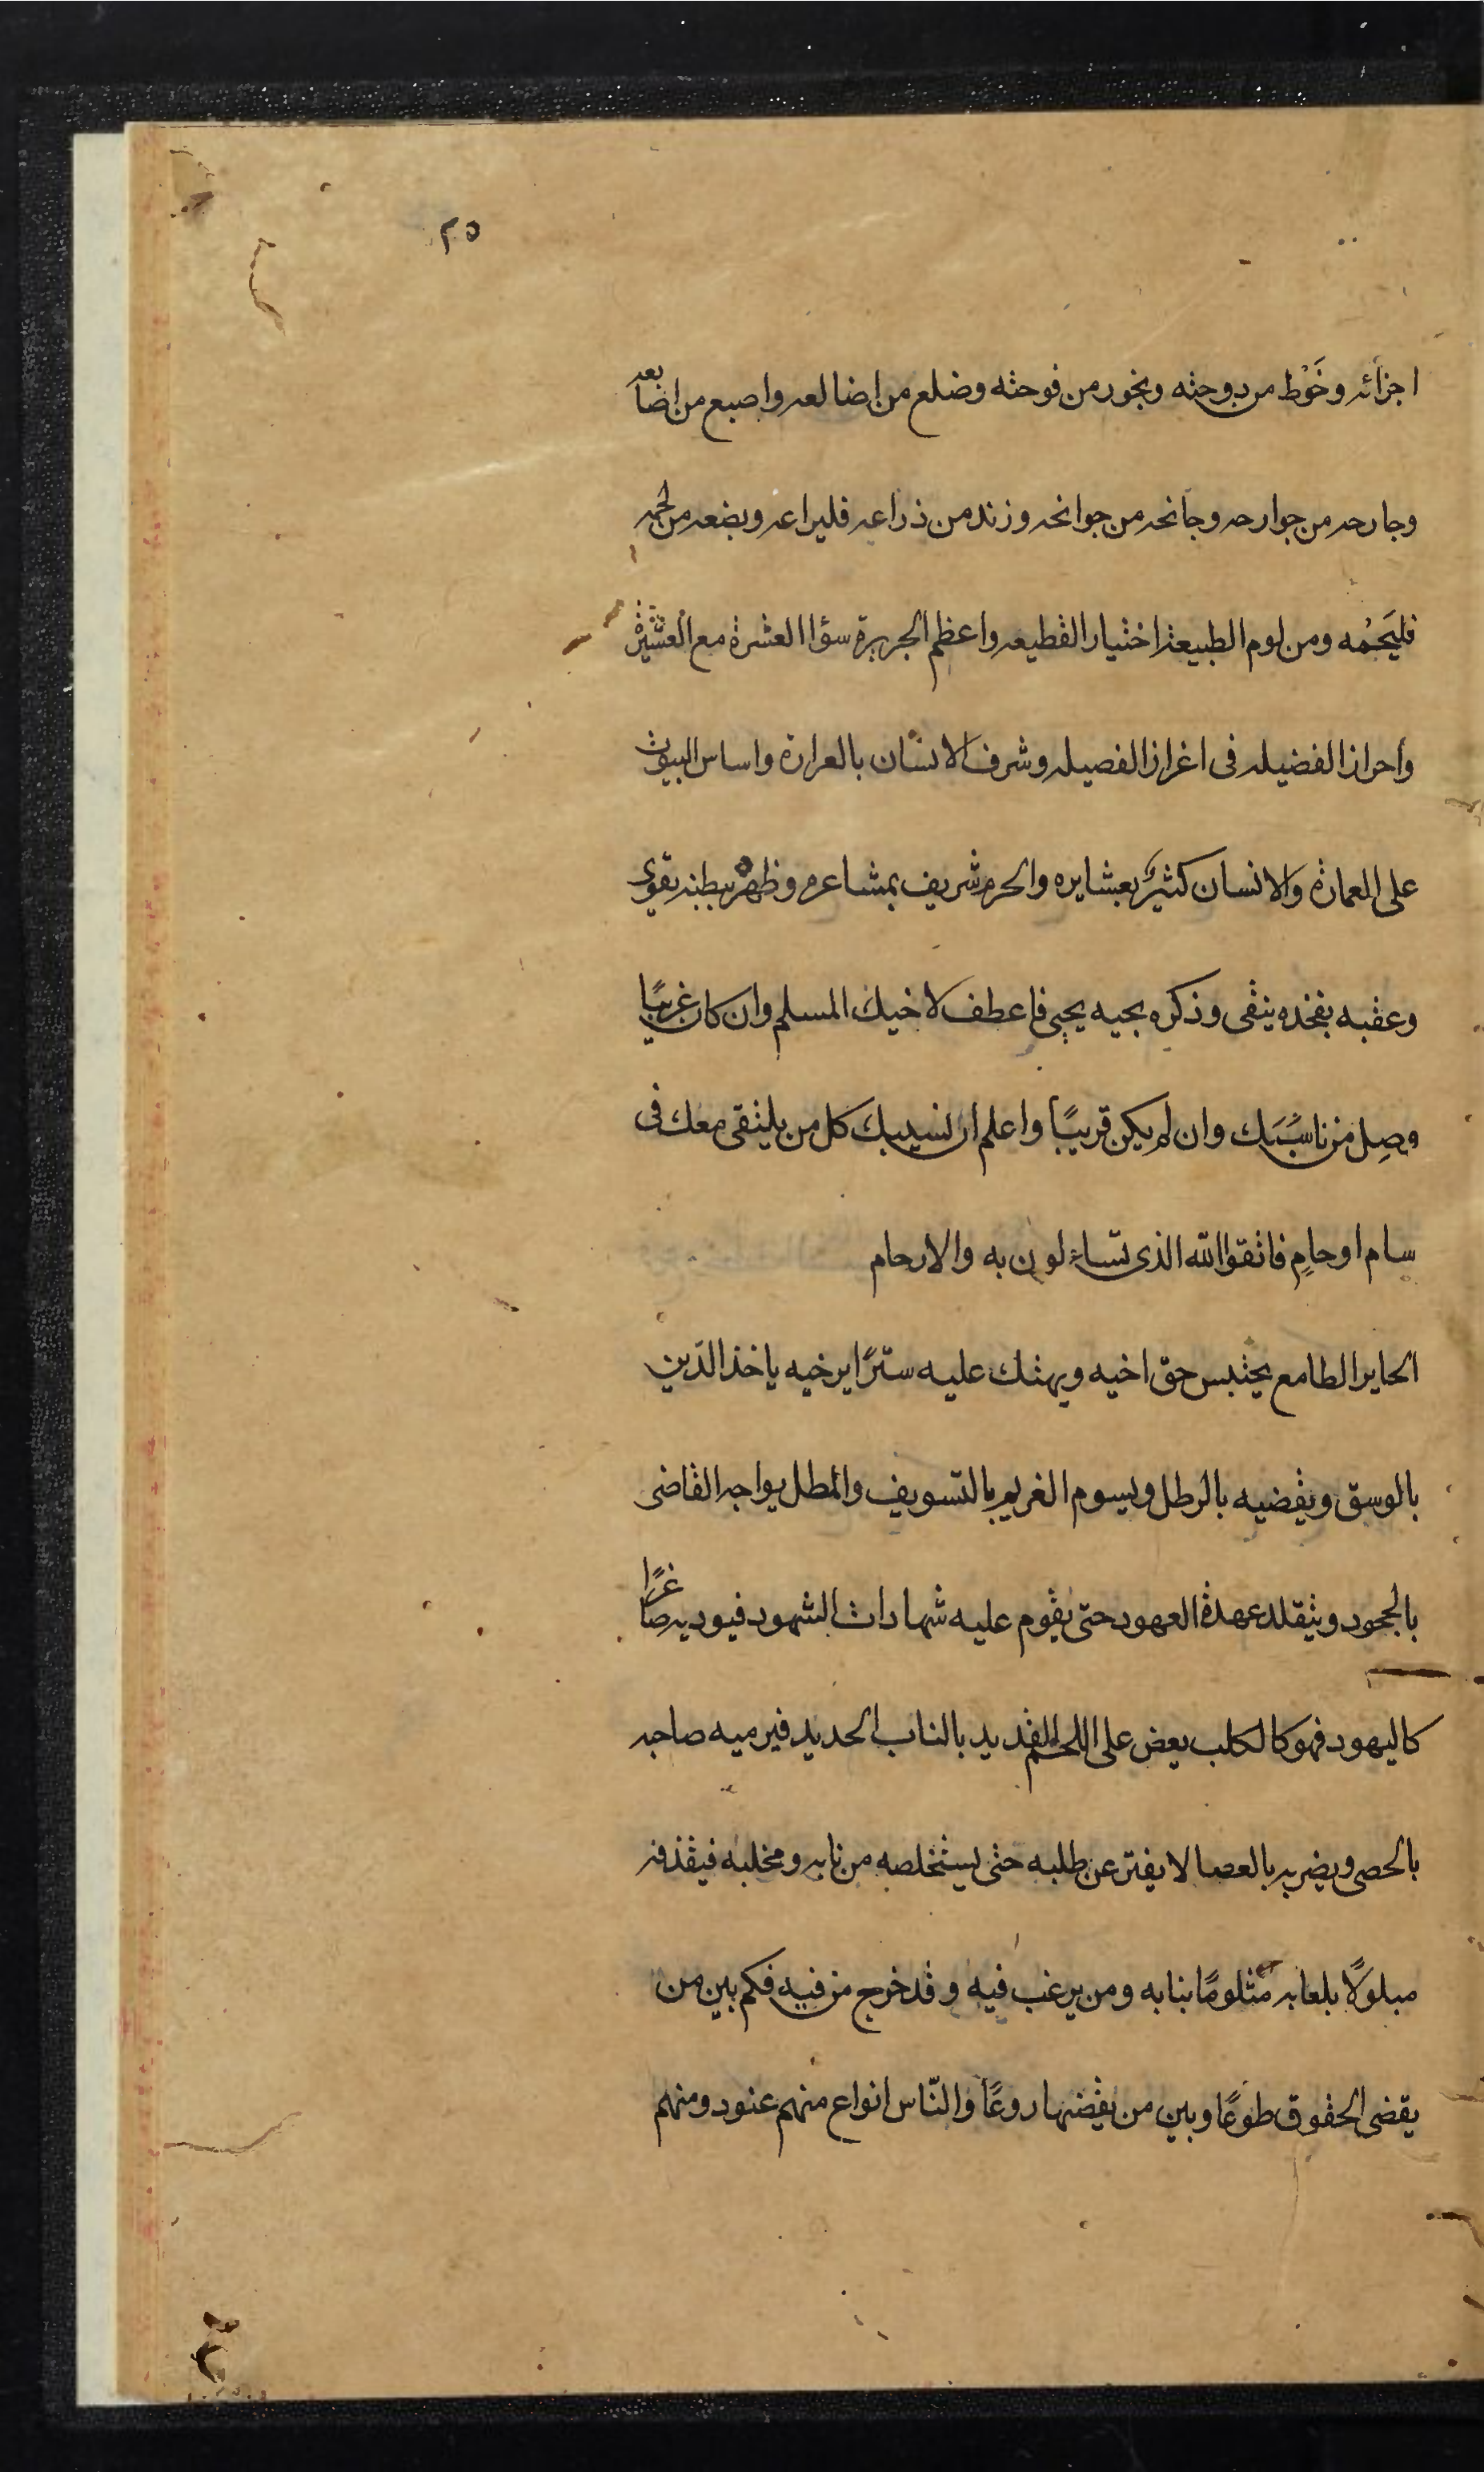 ٢٥
اجزائه وخَوْط من دوحته وبخور من فوحته وضلع من اضالعه واصبع من اضابعه
وجارحه من جوارحه وجانحه من جوانحه وزند من ذراعه فليراعه وبضعه من لحمه
فليَحْمُه ومن لوم الطبيعة اختيار القطيعه واعظم الجريرة سؤا العشرة مع العَشيْرة
وأحراز الفضيله فى اغراز الفصيله وشرف الانسان بالعرارة واساس البيوت
على العمارة والانسان كثيرٌ بعشايره والحرم شريف بمشاعره وظهره ببطنه يقوى
وعقبه بفخذه ينقى وذكره بحيه يحيى فاعطف لاخيك المسلم وان كان غريبًا
وصِل من ناسَبَك وان لم يكن قريبًا واعلم ان نسيبك كل من يلتقى معك فى
سام او حامٍ فاتقوا الله الذى تساءلون به والارحام
الجاير الطامع يحتبس حق اخيه ويهتك عليه سترًا يرخيه ياخذ الدَين
بالوسق ويقضيه بالرطل ويسوم الغريم بالتسويف والمطل يواجه القاضى
بالجحود ويتقلد عهدة العهود حتى يقوم عليه شهادات الشهود فيوديه صاغرًا
كاليهود فهو كالكلب يعض على اللحم القديد بالناب الحديد فيرميه صاحبه
بالحصى ويضربه بالعصا لا يفتر عن طلبه حتى يستخلصه من نابه ومخلبه فيقذفه
مبلولًا بلعابه مثلومًا بنابه ومن يرغب فيه وقد خرج من فيه فكم بين من
يقضى الحقوق طوعًا وبين من يقضيها روعًا والنّاس انواع منهم عنود ومنهم